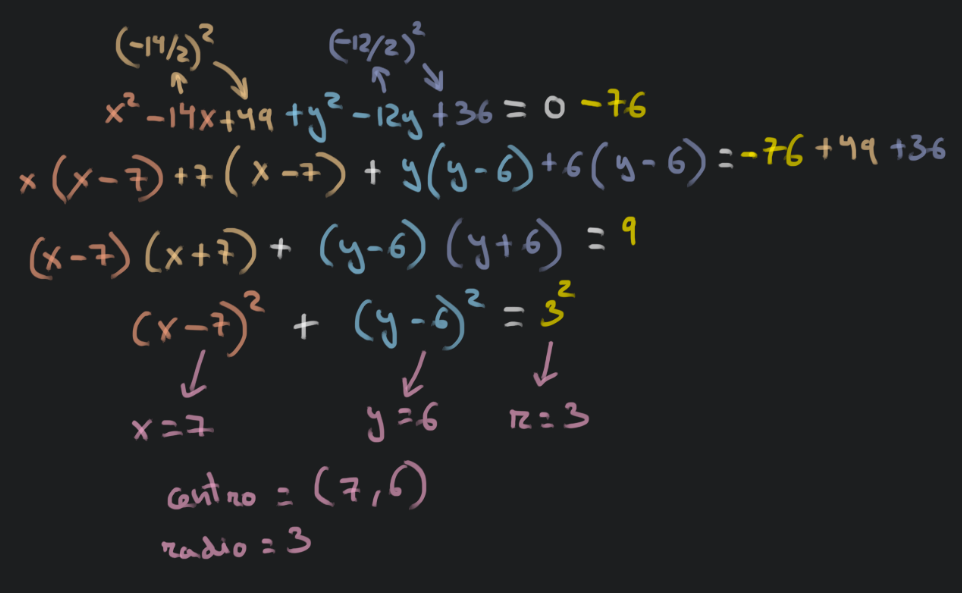 (-14/2)² (-12/2)²
x² - 14x + 49 + y² - 12y + 36 = 0 - 76
x (x - 7) + 7 (x - 7) + y (y - 6) + 6 (y - 6) = -76 + 49 + 36
(x - 7) (x + 7) + (y - 6) (y + 6) = 9
(x - 7)² + (y - 6)² = 3²
x = 7 y = 6 r = 3
centro = (7, 6)
radio = 3